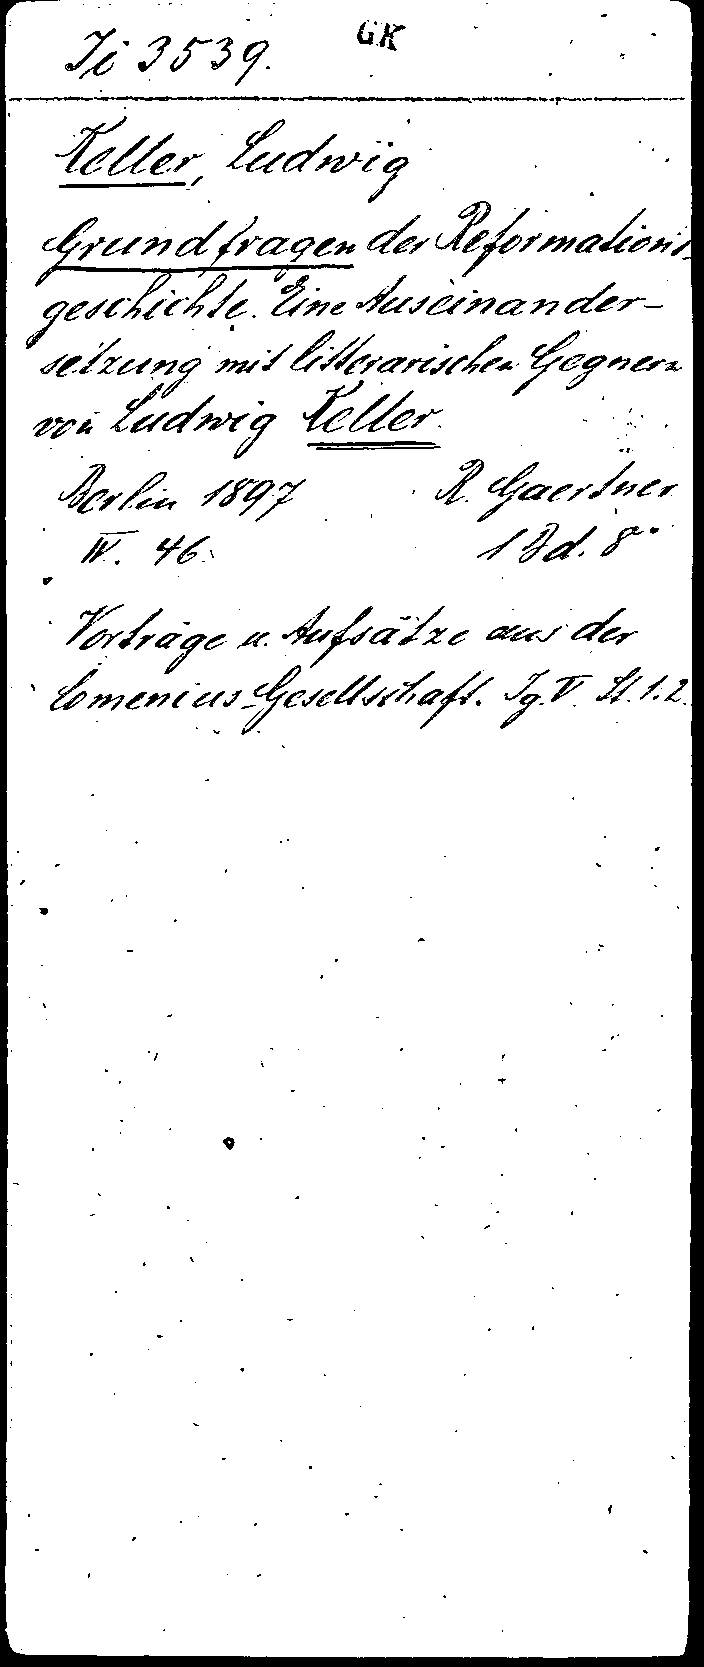 Ji 3539.
GK
Keller, Ludwig
Grundfragen der Reformations-
geschichte. Eine Auseinander-
setzung mit litterarischen Gegnern
von Ludwig Keller.
Berlin 1897 R. Gaertner
IV. 46. 1 Bd. 8°
Vorträge u. Aufsätze aus der
Comenius-Gesellschaft. Jg. V. St. 1.2.